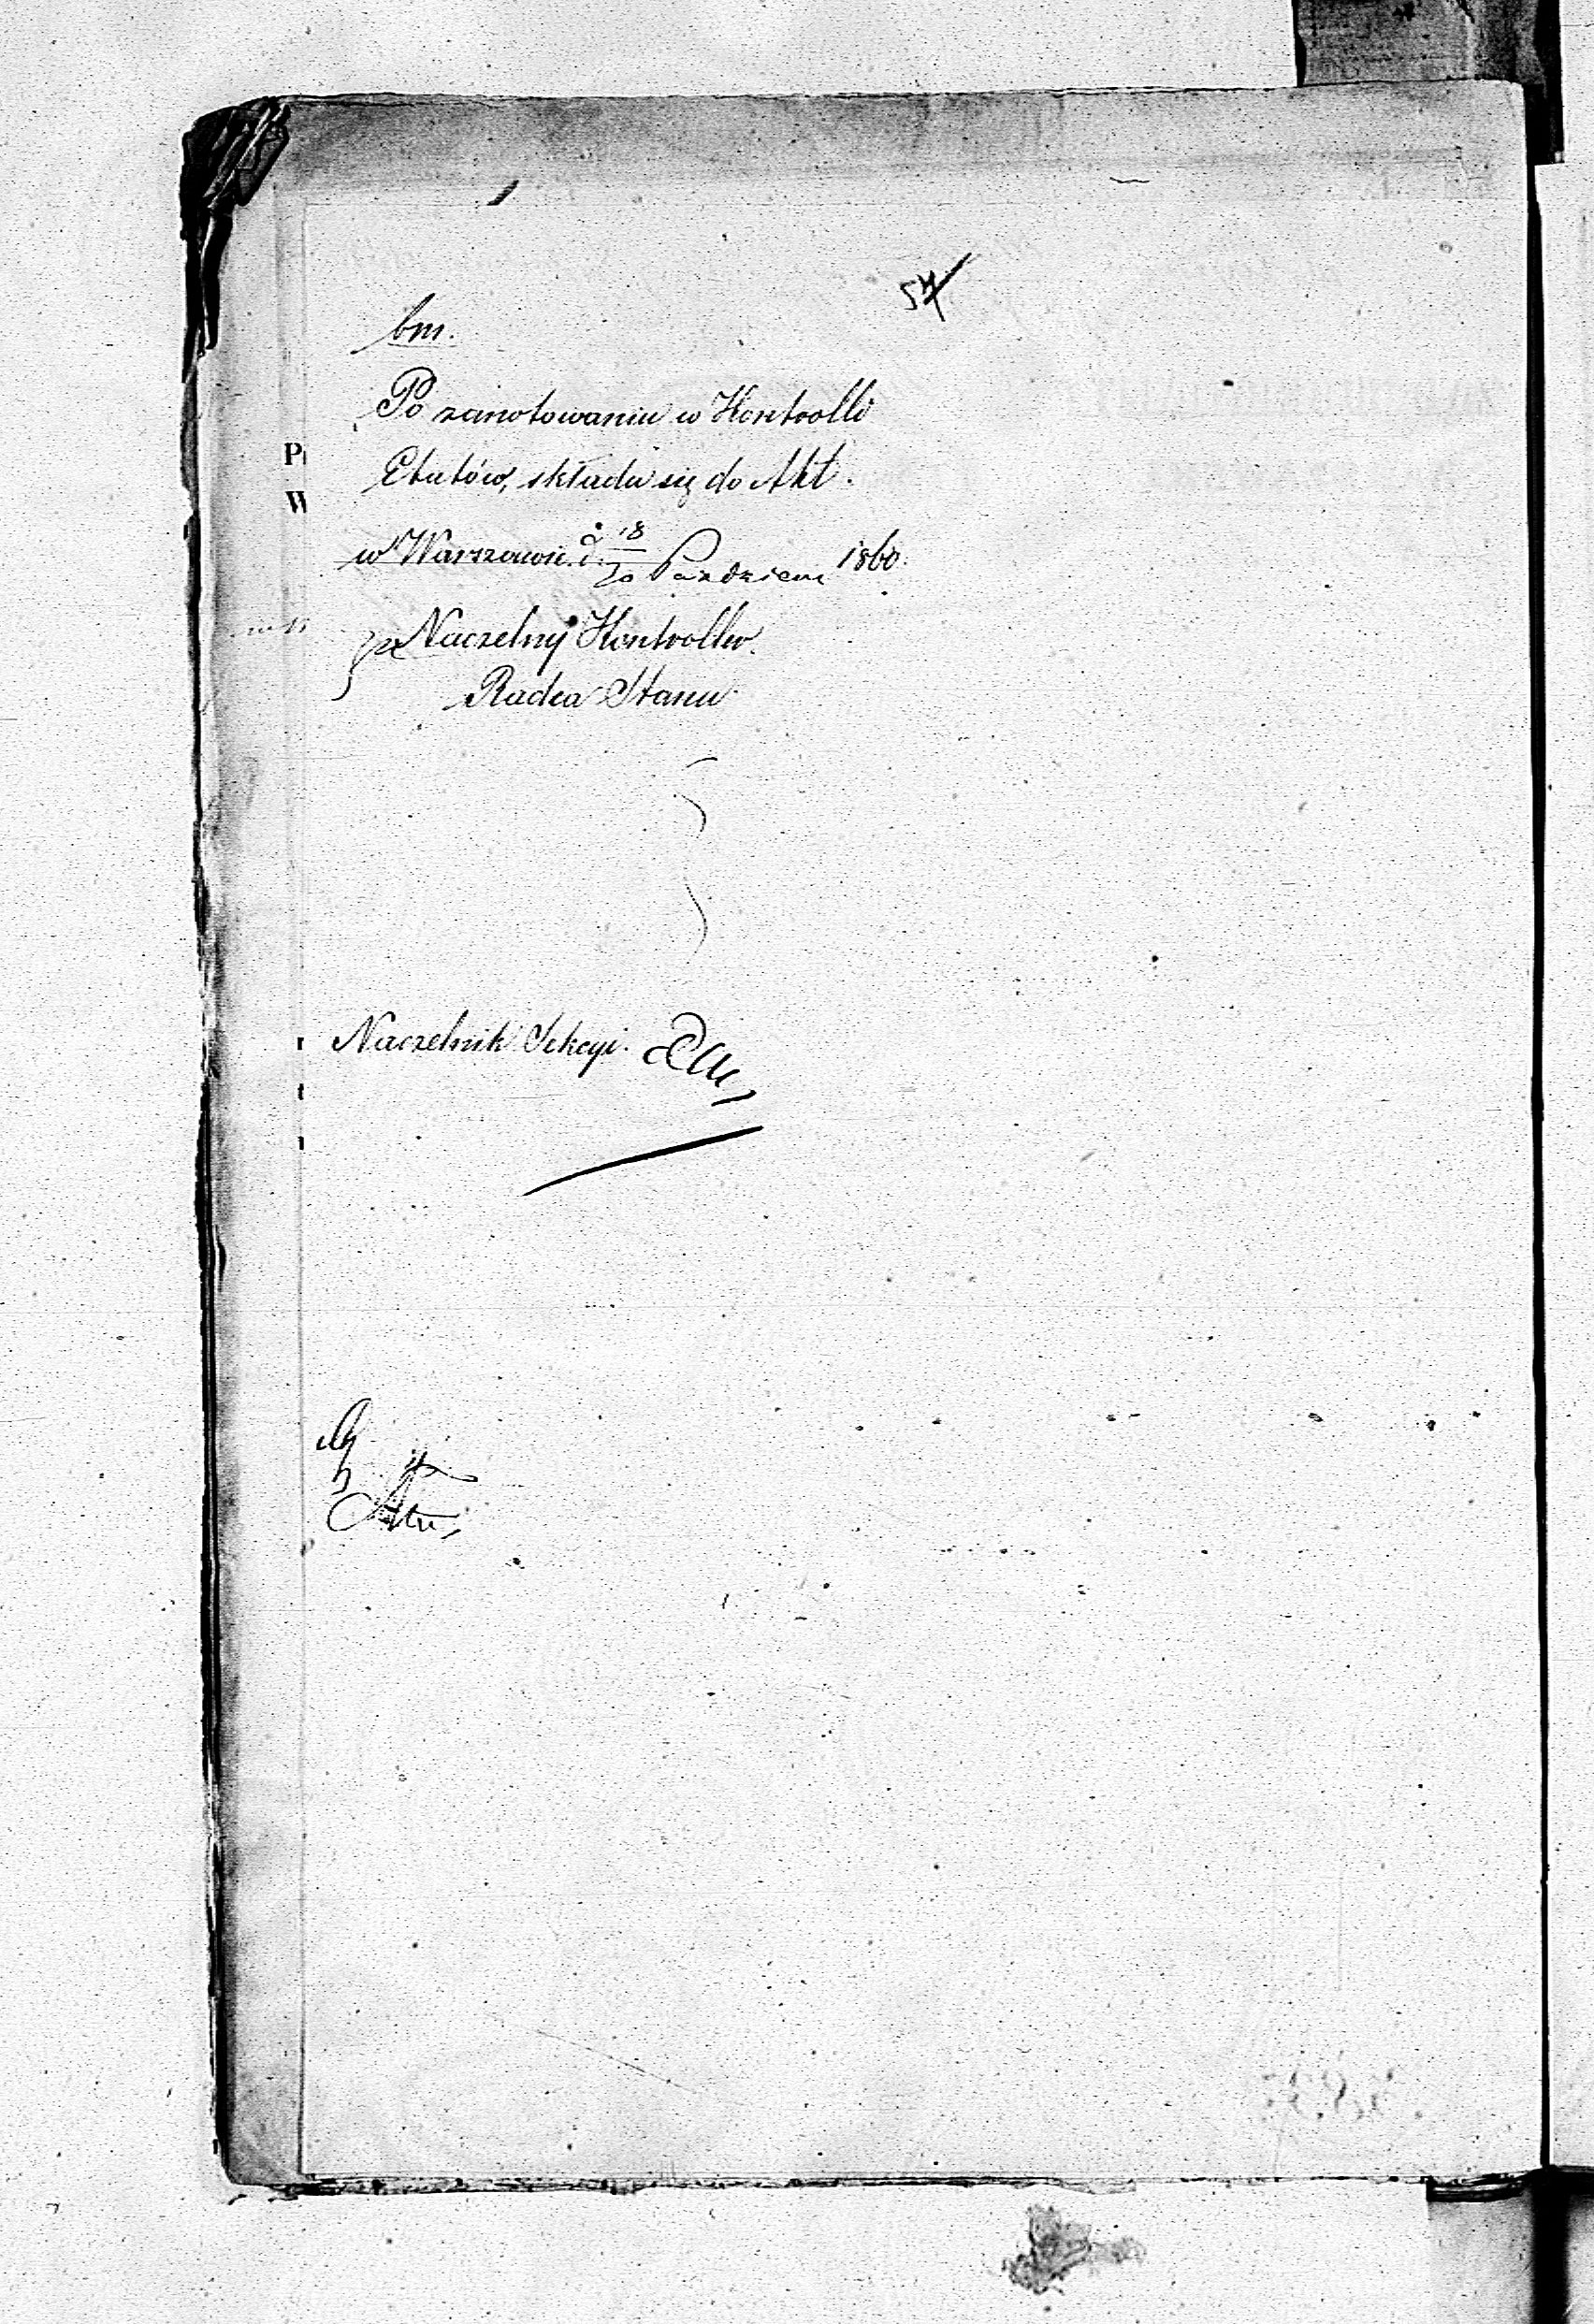 54
bm.
Po zanotowaniu w Kontrolli
Etatów, składa się do Akt.
w Warszawie d. 18/30 Październ 1860.
Naczelny Kontroller.
Radca Stanu
Naczelnik Sekcyi.